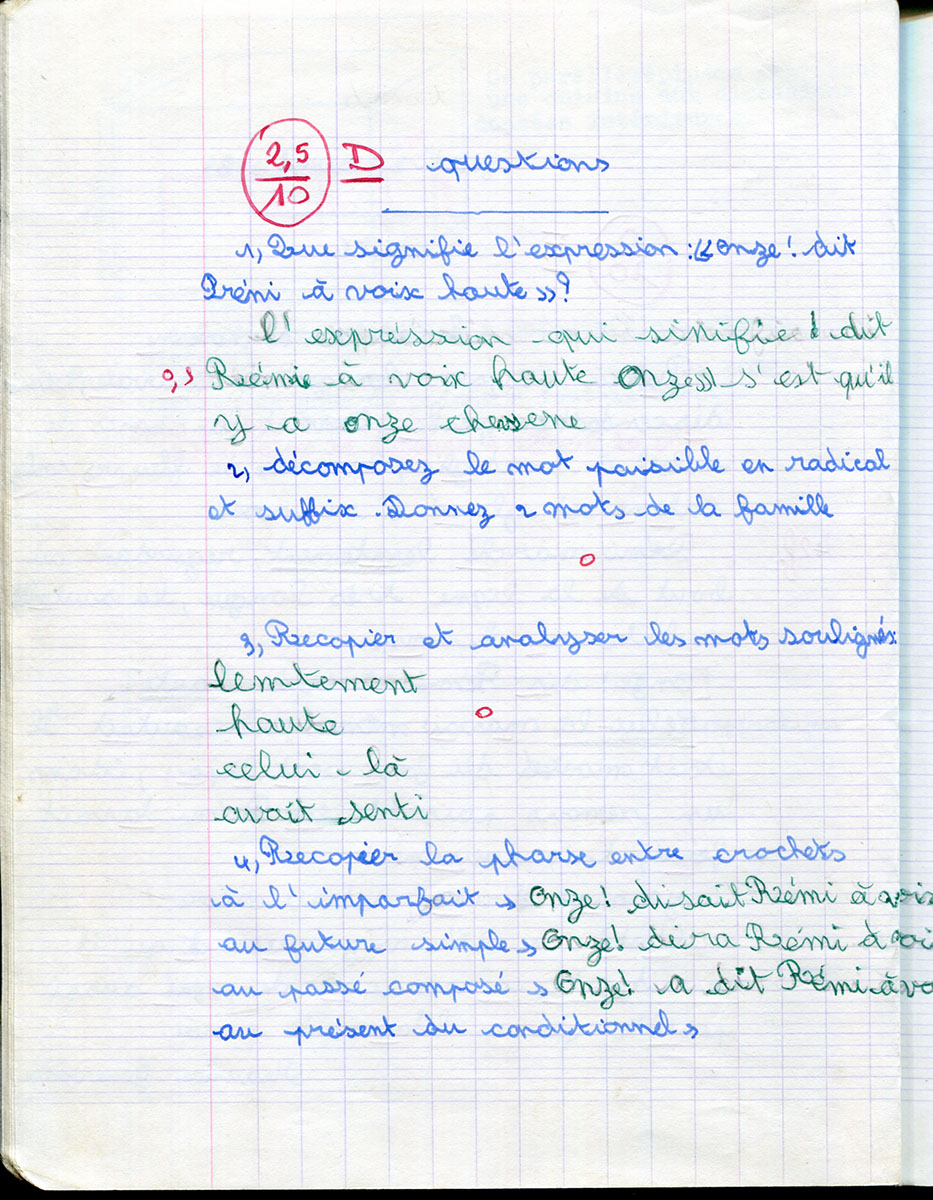 2,5 D questions
10
1, Que signifie l'expression : « Onze ! dit
Rémi à voix haute » ?
l'expréssion qui sinifie ! dit
0,5 Rémie à voix haute Onze » s'est qu'il
y a onze
2, décomposez le mot paisible en radical
et suffix . Donnez 2 mots de la famille
0
3, Recopier et analyser les mots soulignés :
lentement
haute
0
celui - là
avait senti
4, Recopier la pharse entre crochets
à l'imparfait » Onze ! disait Rémi à voix
au future simple » Onze ! dira Rémi à voi
au passé composé » Onze ! a dit Rémi à vo
au présent du conditionnel »